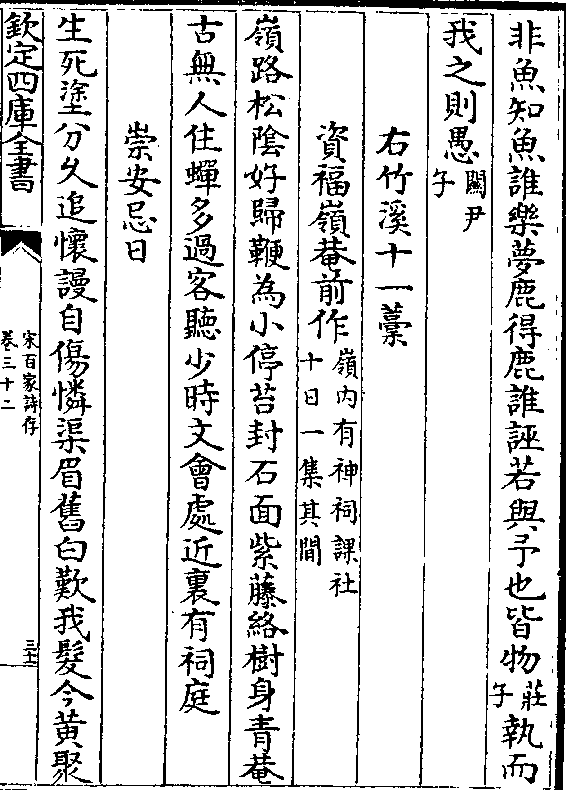 非魚知魚誰樂夢鹿得鹿誰誣若與予也皆物莊子執而
我之則愚關尹子
右竹溪十一藁
資福嶺菴前作嶺内有神祠課社十日一集其間
嶺路松陰好歸鞭為小停苔封石面紫藤絡樹身青菴
古無人住蟬多過客聽少時文會處近裏有祠庭
崇安忌日
生死塗分久追懷謾自傷憐渠眉舊白歎我髮今黄聚
欽定四庫全書
宋百家詩存
卷三十二
三十二